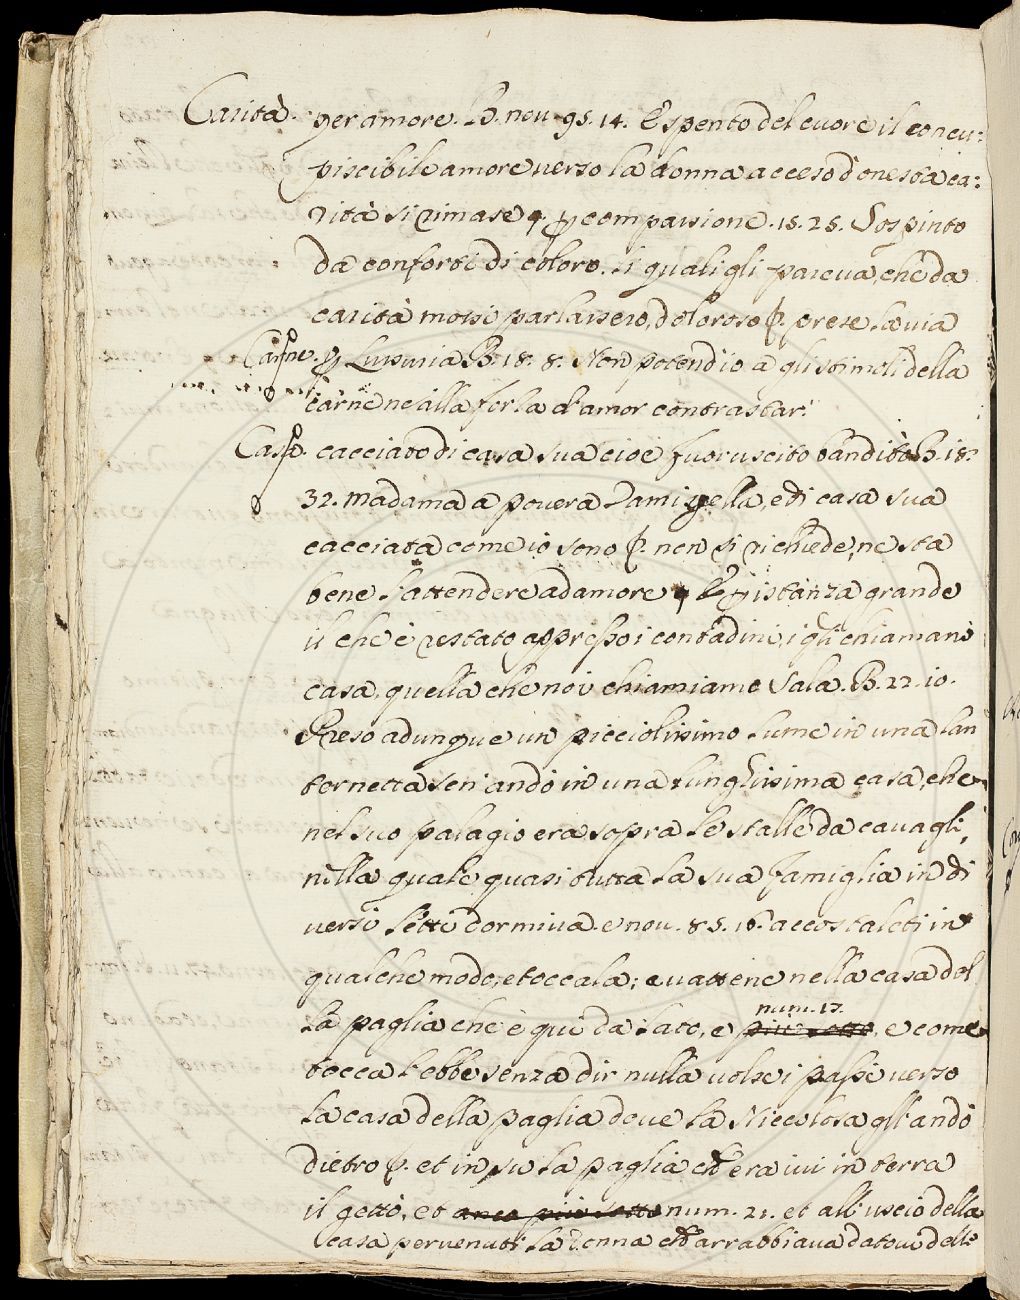 Carità. per amore. B. nou. 95. 14. E spento del cuore il concu:
piscibile amore verso la donna acceso d'onesta ca:
rità si rimase compassione. 15. 25. Sospinto
da conforti di coloro. li quali gli pareua, che da
carità mossi parlassero, doloroso p. prese la via
Carne. Lussuria B. 18. 8. Non potend'io a gli stimoli della
carne ne alla forza d'amor contrastar.
Casa. cacciato di casa sua cioè fuoruscito bandito B. 18.
32. Madama a pouera Damigella, e di casa sua
cacciata come io sono p. non si richiede, ne sta
bene l'attendere ad amore istanza grande
il che è restato appresso i contadini, i qli chiamano
casa, quella che noi chiamiamo Sala. B. 22. 10.
Preso adunque un picciolissimo lume in una lan
ternetta sen' andò in una lunghissima casa, che
nel suo palagio era sopra le stalle da cauagli,
nella quale quasi tutta la sua famiglia in di
uersi letti dormiua. e nou. 85. 16. accostaleti in
qualche modo, e toccala; e uattene nella casa del
num. 17.
la paglia che è qui da lato, e più sotto, e come
tocca l'ebbe senza dir nulla uolse i passi verso
la casa della paglia doue la Niccolosa gli andò
dietro p. et in su la paglia ch'era iui in terra
il gettò, et anco più sotto num. 21. et all'uscio della
casa peruenuti la donna ch'arrabbiaua datoui delle